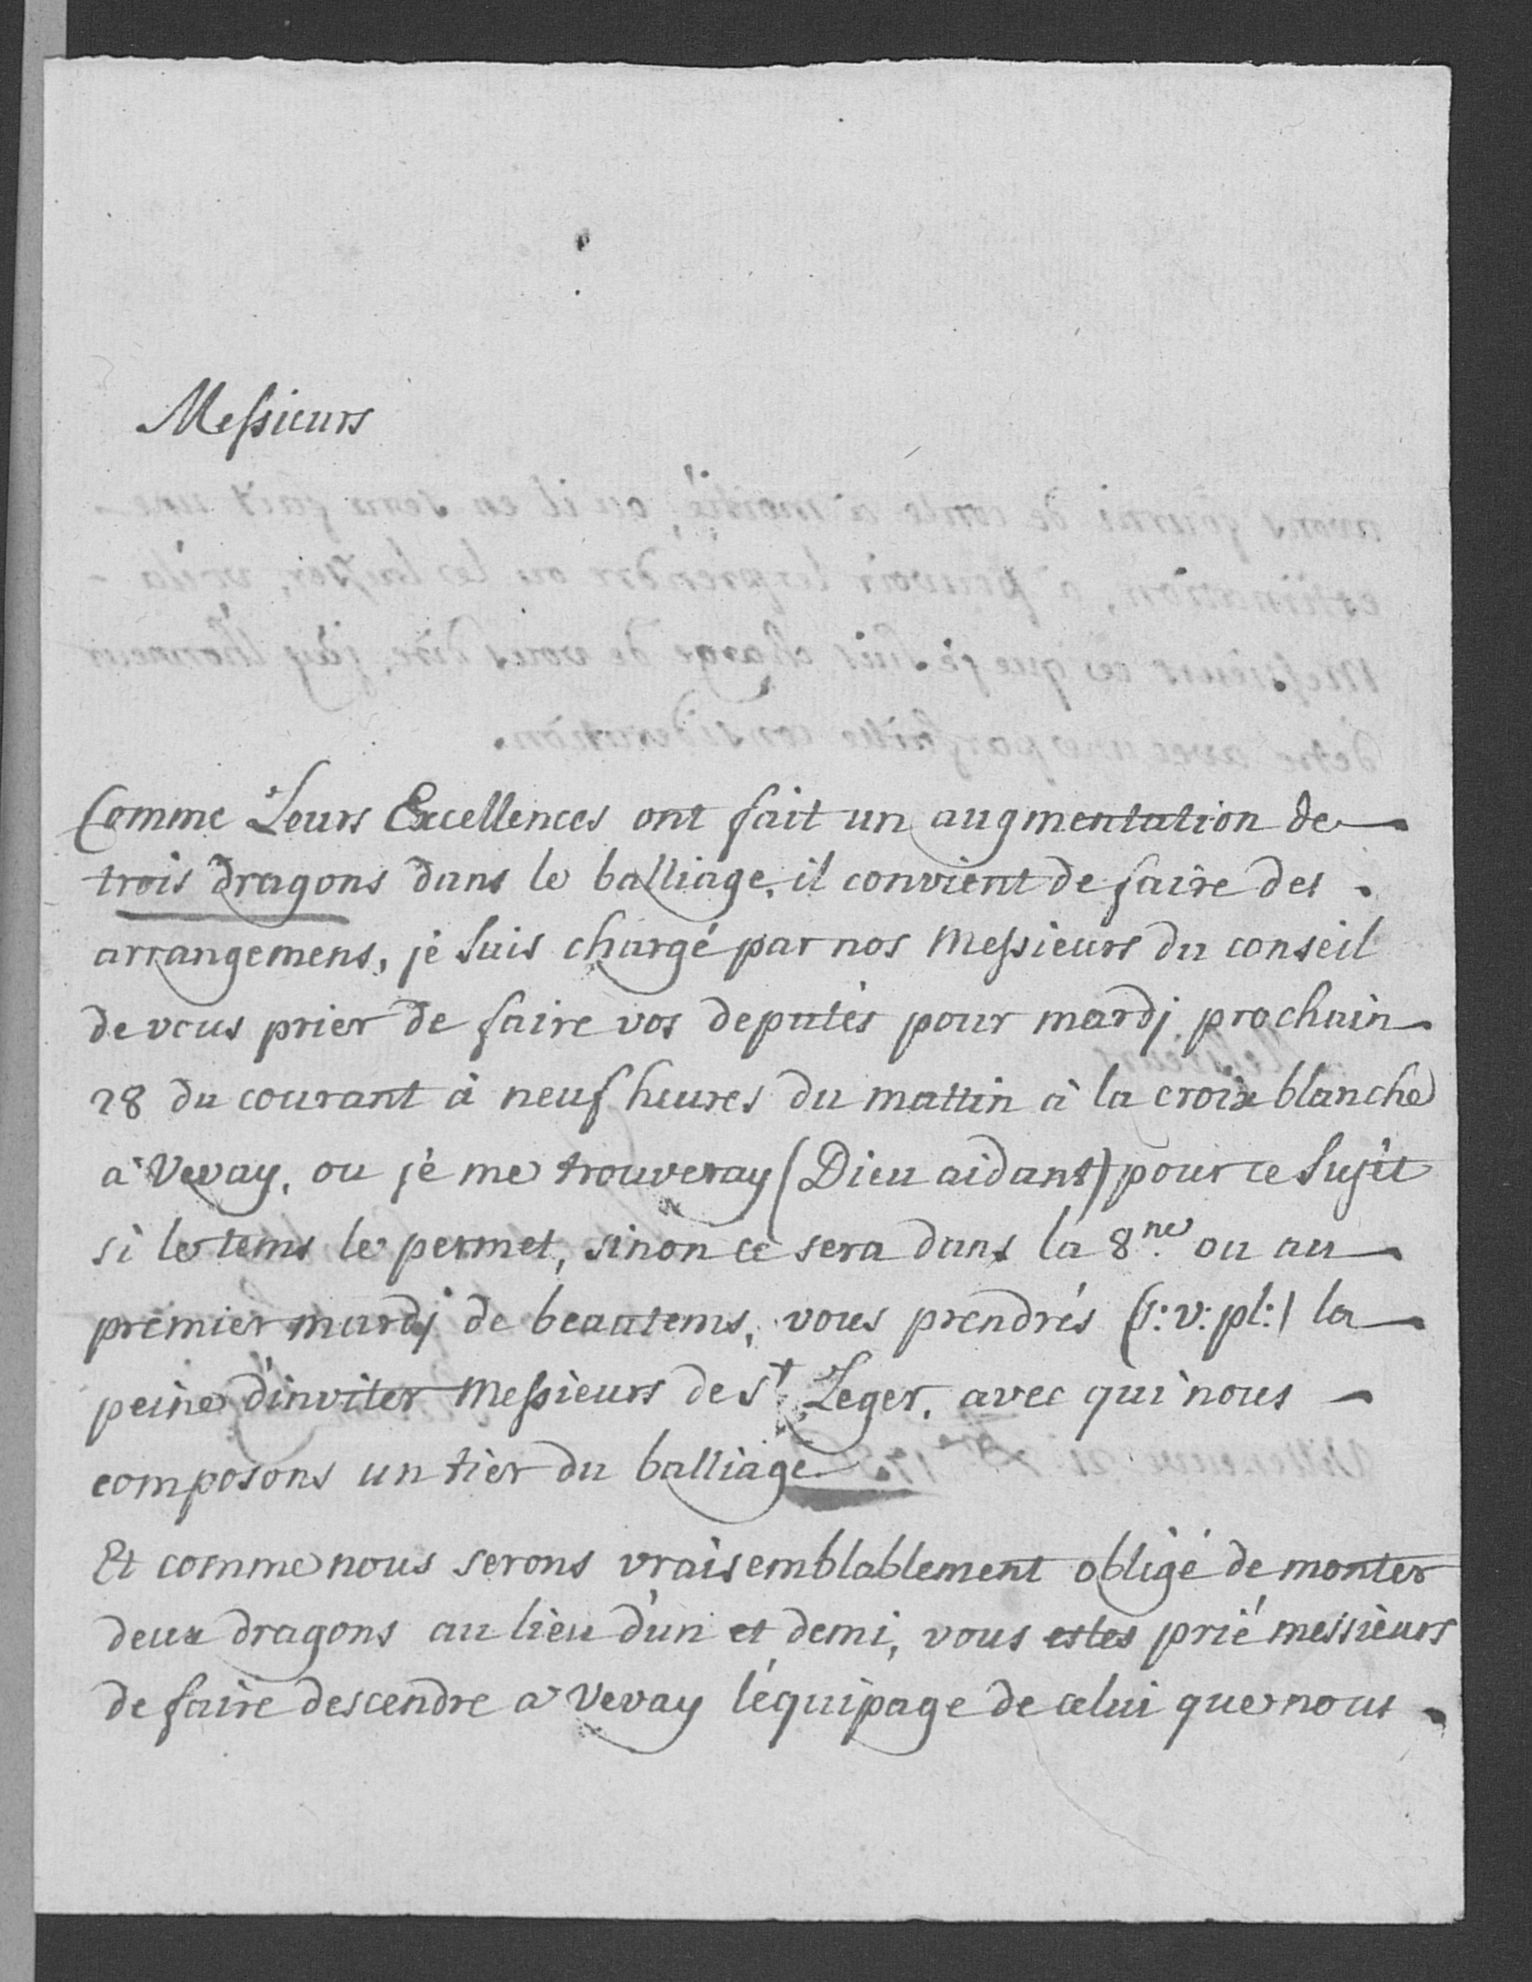 Messieurs
Comme Leurs Excellences ont fait un augmentation de
trois dragons dans le balliage, il convient de faire des
arrangemens, je suis chargé par nos Messieurs du conseil
de vous prier de faire vos deputés pour mardj prochain
28 du courant à neuf heures du mattin à la croix blanche
a Vevay, ou je me trouveray (Dieu aidant) pour ce sujét
si le tems le permet, sinon ce sera dans la 8.ne ou au
premier mardj de beautems, vous prendrés (s: v: pl:) la
peine d'inviter Messieurs de St Leger, avec qui nous
composons un tier du balliage
Et comme nous serons vraisemblablement obligé de monter
deux dragons au lieu d'un et demi, vous estes prié messieurs
de faire descendre a Vevay l'équipage de celui que nous